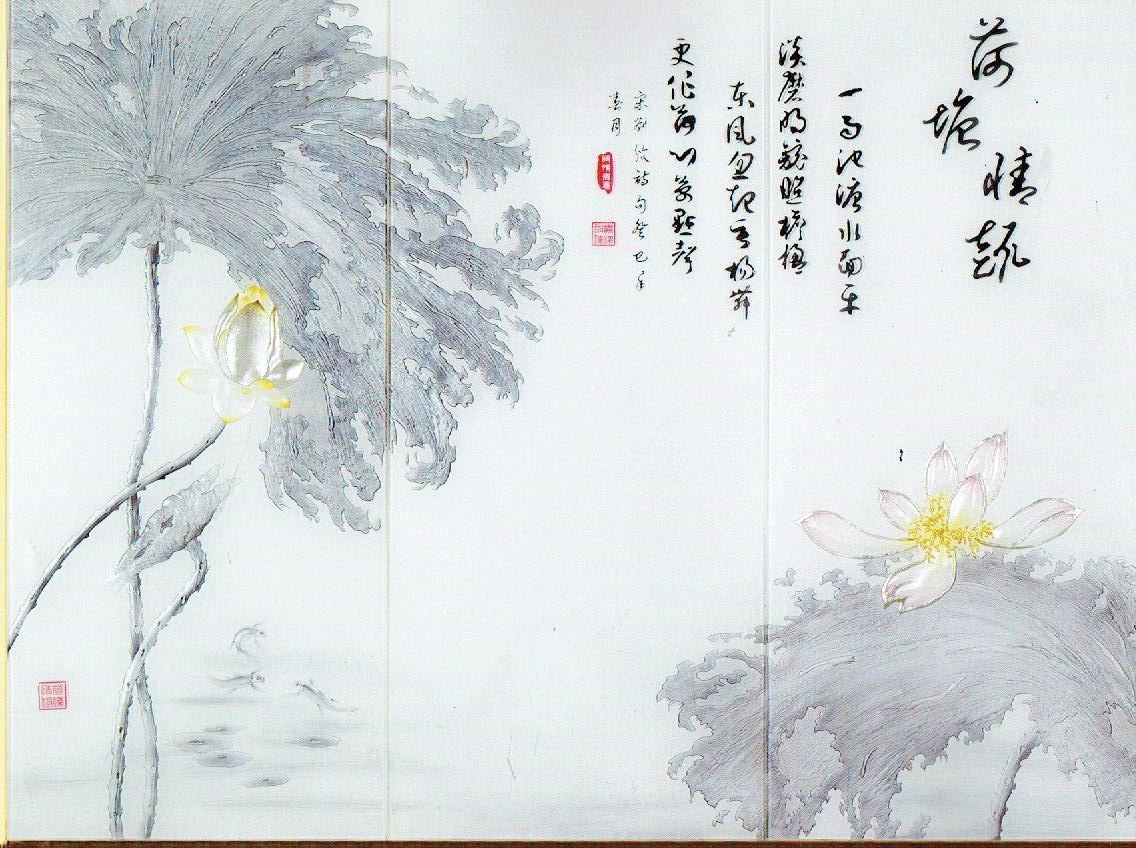 荷塘情韵
一雨池塘水面平
淡磨明鏡照檐楹
东风忽起垂杨舞
更作荷心萬點聲
宋劉攽詩句癸巳年
春月